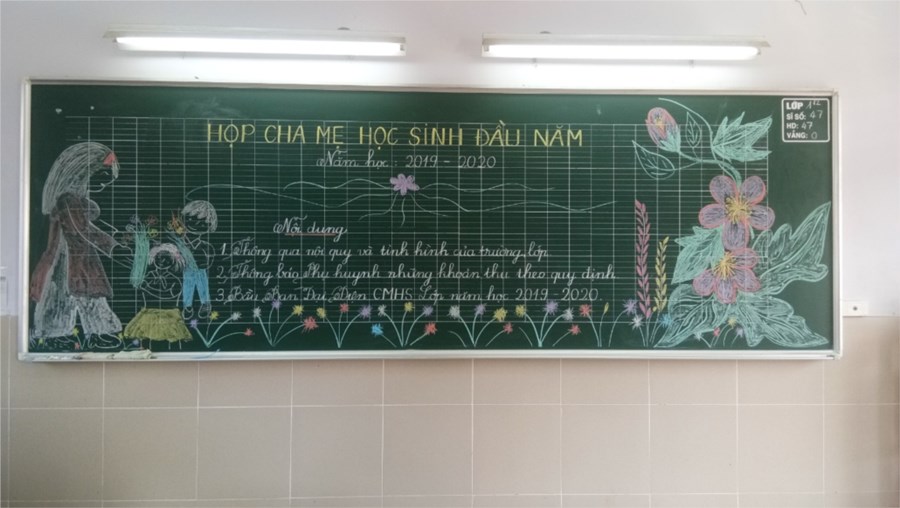 HỌP CHA MẸ HỌC SINH ĐẦU NĂM
Năm học: 2019 - 2020
Nội dung:
1. Thông qua nội quy và tình hình của trường, lớp.
2. Thông báo Phụ huynh những khoản thu theo quy định
3. Bầu Ban Đại Diện CMHS Lớp năm học 2019 - 2020.
LỚP 1
SĨ SỐ: 47
HD: 47
VẮNG: 0